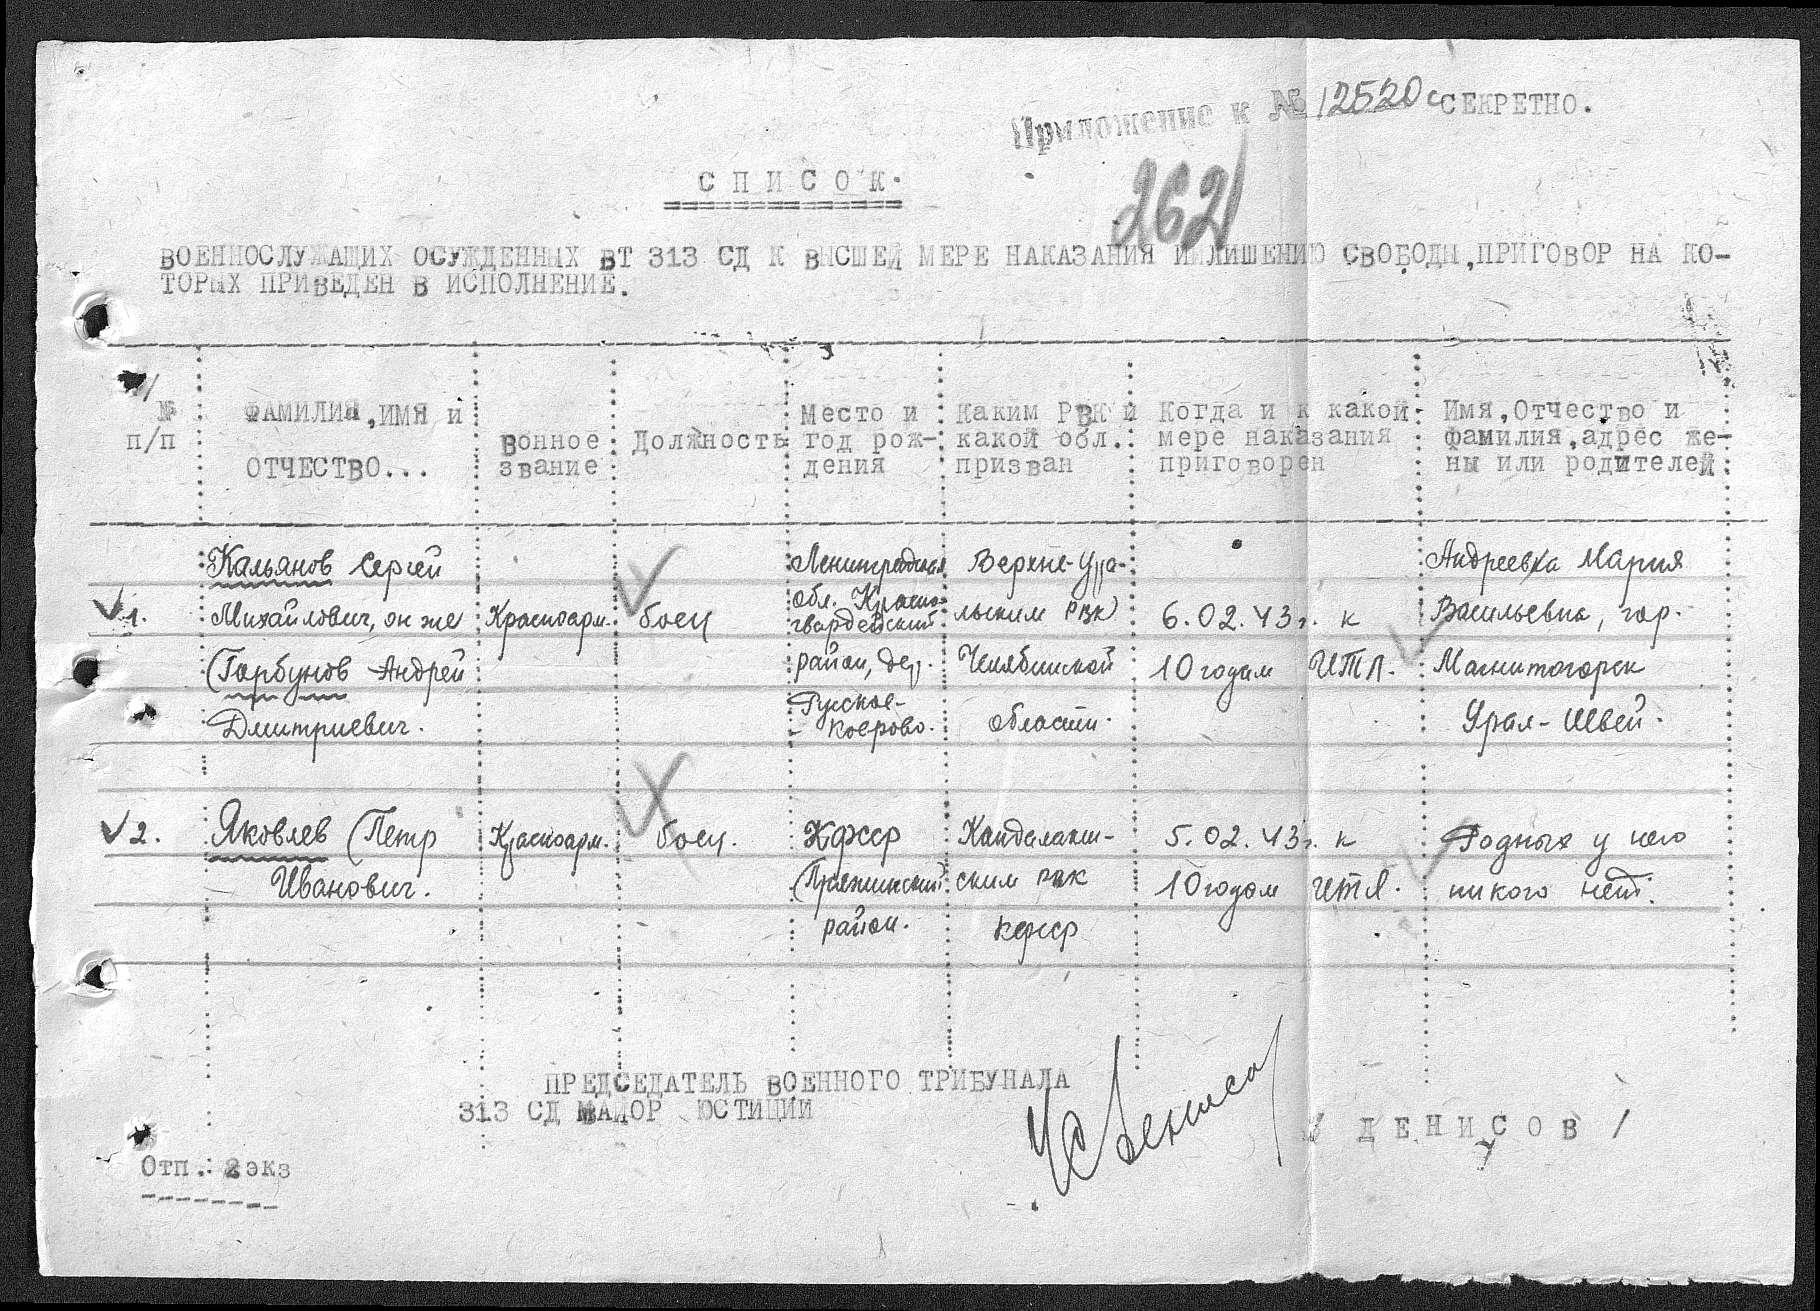 Приложение к № 12520с
СЕКРЕТНО.
262
СПИСОК.
ВОЕННОСЛУЖАЩИХ ОСУЖДЕННЫХ ВТ 313 СД К ВЫСШЕЙ МЕРЕ НАКАЗАНИЯ И ЛИШЕНИЮ СВОБОДЫ, ПРИГОВОР НА КО-
ТОРЫХ ПРИВЕДЕН В ИСПОЛНЕНИЕ.
№
п/п
ФАМИЛИЯ, ИМЯ и
ОТЧЕСТВО...
Вонное
звание
Должность
Место и
год рож-
дения
Каким РВК и
какой обл.
призван
Когда и к какой
мере наказания
приговорен
Имя, Отчество и
фамилия, адрес же-
ны или родителей
1.
Кальянов Сергей
Михайлович, он же
(Горбунов Андрей
Дмитриевич.
Красноарм.
боец
Ленинградская
обл. Красно-
гвардейский
район, дер.
Русское-
Коерово.
Верхне-Ура-
льским РВК
Челябинской
области.
6.02.43г. к
10 годам ИТЛ.
Андреевка Мария
Васильевна, гор.
Магнитогорск
Урал-Швей.
2.
Яковлев (Петр
Иванович.
Красноарм.
боец.
КФССР
(Пряжинский
район.
Кандалакш-
ским рвк
КФССР
5.02.43г. к
10 годам ИТЛ.
Родных у него
никого нет.
ПРЕДСЕДАТЕЛЬ ВОЕННОГО ТРИБУНАЛА
313 СД МАЙОР ЮСТИЦИИ
/ ДЕНИСОВ /
Отп. 2экз